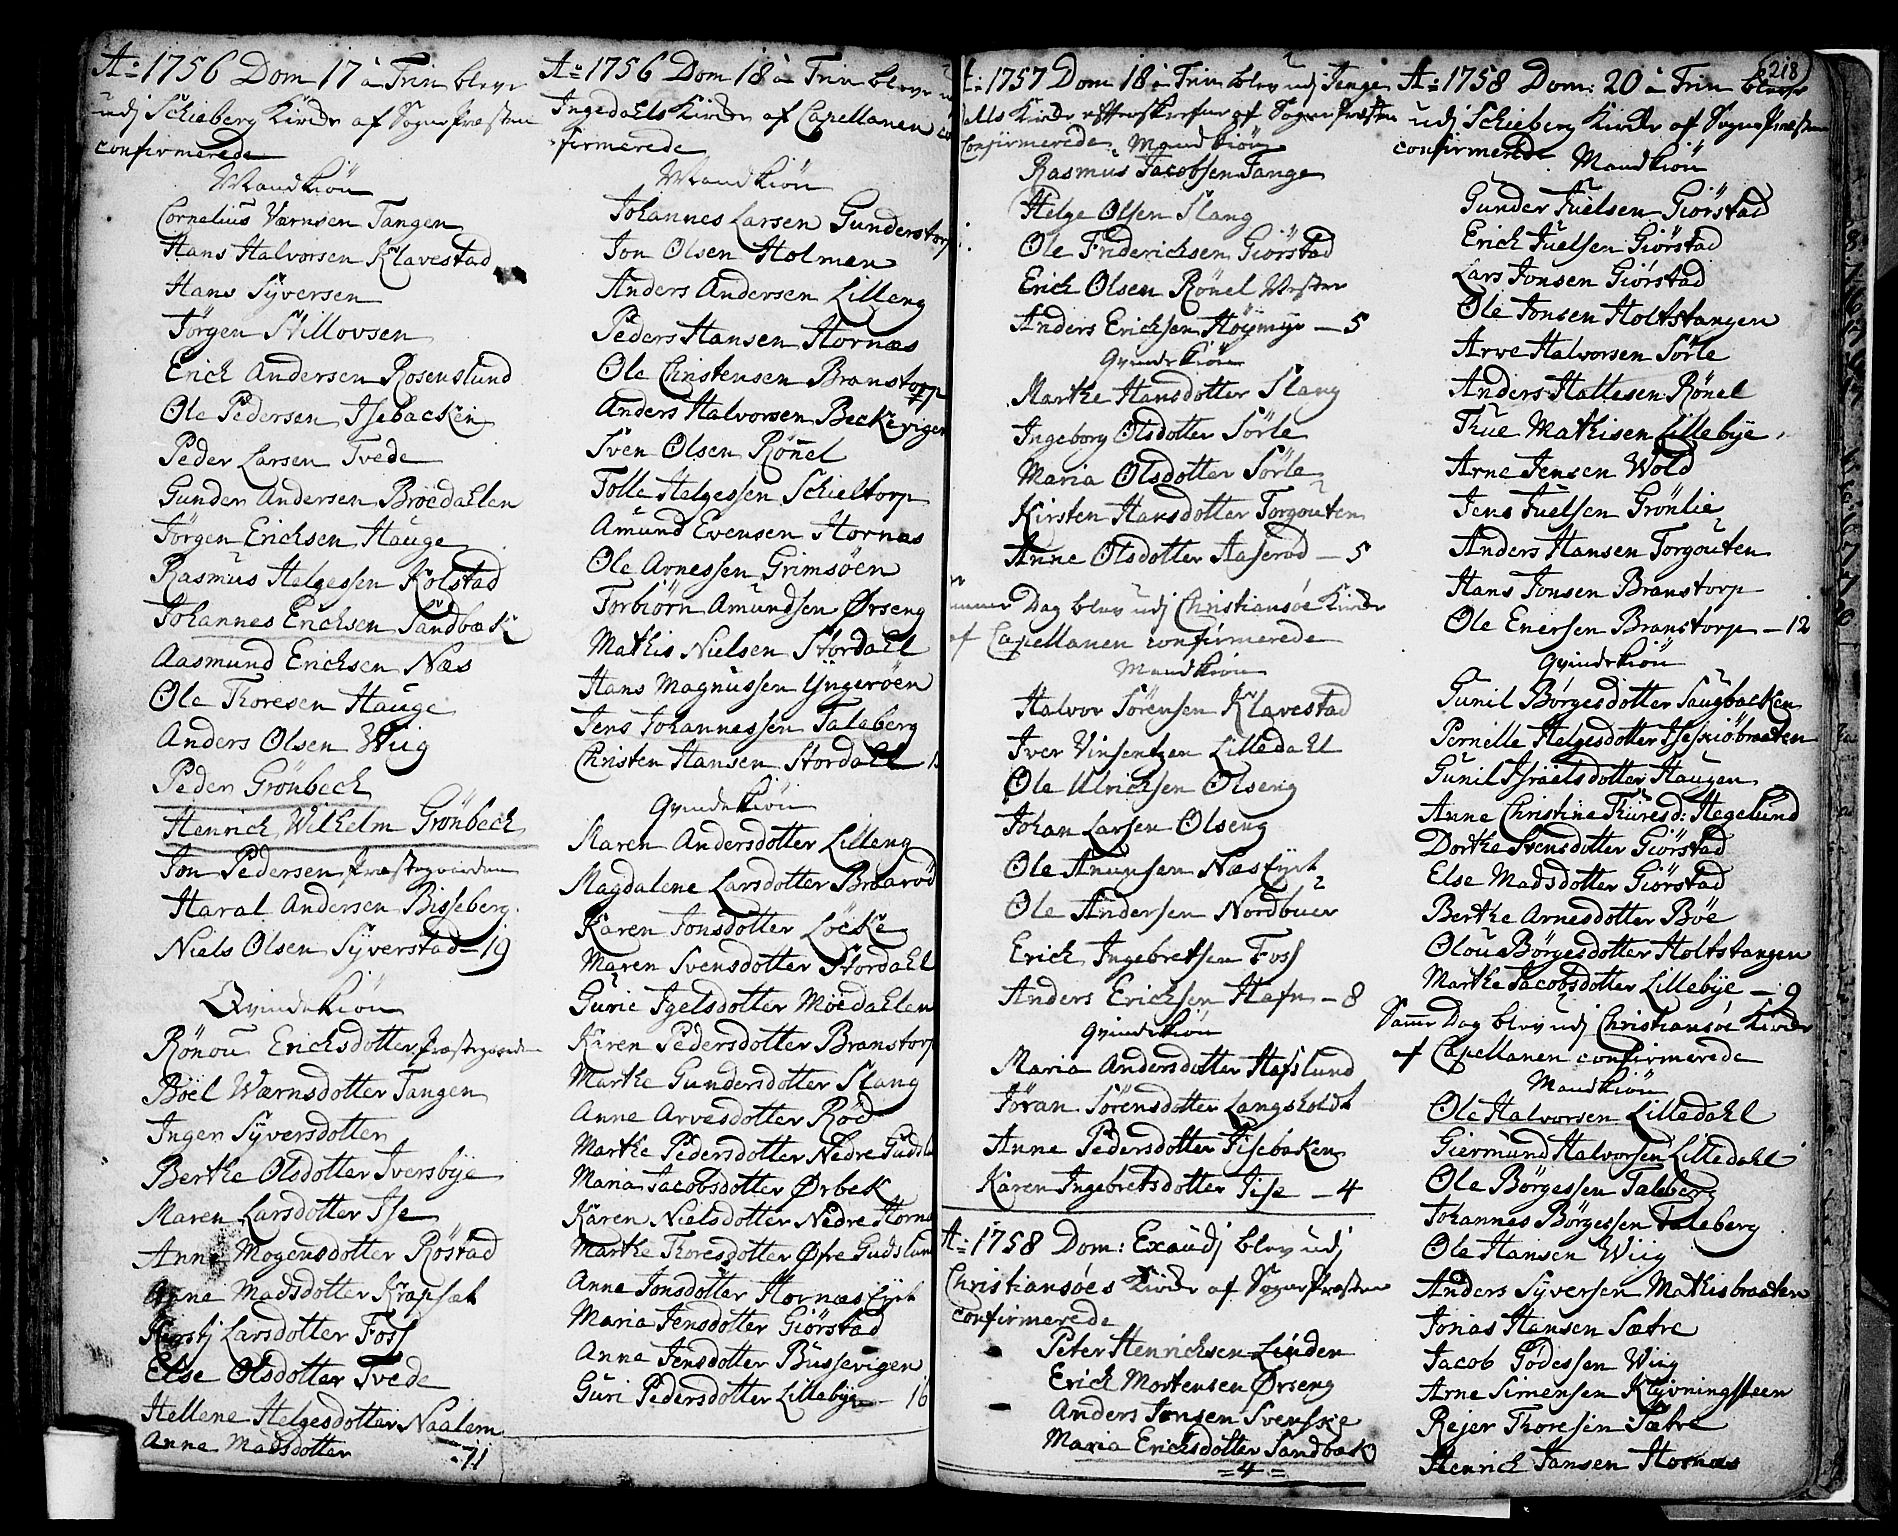 Ao 1756 Dom 17 à Trin bleve
udj Schieberg Kircke af Sogne Præsten
confirmerede
Mandkiön
Cornelius Værnsen Tangen
Hans Halvorsen Klavestad
Hans Syversen
Jörgen Stillovsen
Erich Andersen Rosenslund
Ole Pedersen Isebacken
Peder Larsen Tvede
Gunder Andersen Bröedahlen
Jörgen Erichsen Hauge
Rasmus Helgessen Kolstad
Johannes Erichsen Sandbæk
Aasmund Erichsen Næs
Ole Thoresen Hauge
Anders Olsen Wiig
Peder Grönbech
Henrich Wilhelm Grönbech
Jon Pedersen Præstegaarden
Haral Andersen Bisseberg
Niels Olsen Syverstad - 19
Qvindekiön
Rönou Erichsdotter Præstegaarden
Böel Wærnsdotter Tangen
Inger Syversdotter
Berthe Olsdotter Iversbye
Maren Larsdotter Ise
Anne Mogensdotter Röstad
Anne Madsdotter Krapsæt
Kirstj Larsdotter Foss
Else Olsdotter Tvede
Hellene Helgesdotter Naalem
Anne Madsdotter - 11
Ao 1756 Dom 18 à Trin bleve udj
Ingedahls Kircke af Capellanen con
firmerede
Mandkiön
Johannes Larsen Gunderstorp
Jon Olsen Holmen
Anders Andersen Lilleng
Peders Hansen Hornæs
Ole Christensen Branstorp
Anders Halvorsen Beckevigen
Sven Olsen Rönel
Tolle Helgessen Schieltorp
Amund Evensen Hornæs
Ole Arnessen Grimsöen
Torbiörn Amundsen Ørseng
Mathis Nielsen Stordahl
Hans Magnussen Yngeröen
Jens Johannessen Taleberg
Christen Hansen Stordahl
Qvindekiön
Maren Andersdotter Lilleng
Magdalene Larsdotter Braaröd
Karen Jonsdotter Löcke
Maren Svensdotter Stordahl
Gurie Igelsdotter Moedahlen
Karen Pedersdotter Branstorp
Marthe Gundersdotter Slang
Anne Arvesdotter Röd
Marthe Pedersdotter Nedre Gudsl
Maria Jacobsdotter Ørbek
Karen Nielsdotter Nedre Horne
Marthe Thoresdotter Øfre Gudslun
Anne Jonsdotter Hornæs Eyet
Maria Jensdotter Giörstad
Anne Jensdotter Bussevigen
Guri Pedersdotter Lillebye - 16
Ao 1757 Dom 18 à Trin blev udj Inge
dals Kircke efterskrefne af Sogne Præsten
Confirmerede Mandkiön
Rasmus Jacobsen Tange
Helge Olsen Slang
Ole Friderichsen Giörstad
Erich Olsen Rönel Vester
Anders Erichsen Höymyr - 5
Qvindekiön
Marthe Hansdotter Slang
Ingeborg Olsdotter Sörle
Maria Olsdotter Sörle
Kirsten Hansdotter Torgouten
Anne Olsdotter Aaseröd - 5
Dag blev udj Christiansöe Kircke
af Capellanen confirmerede
Mandkiön
Halvor Sörensen Klavestad
Iver Vinsentzen Lilledahl
Ole Ulrichsen Olseng
Johan Larsen Olseng
Ole Anunsen Næs Eyet
Ole Andersen Nordbuer
Erich Ingebretsen Foss
Anders Erichsen Hafn - 8
Qvindekiön
Maria Andersdotter Hafslund
Jöran Sörensdotter Langsholdt
Anne Pedersdotter Iisebaken
Karen Ingebretsdotter Iise - 4
Ao 1758 Dom: Exaudj blev udj
Christiansöes Kircke af Sogne Præsten
confirmerede
Peter Henrichsen Linder
Erich Mortensen Ørseng
Anders Jonsen Svenskie
Maria Erichsdotter Sandbæk
= 4 =
218
Ao 1758 Dom: 20 à Trin bleve
udj Schieberg Kircke af Sogne Præsten
confirmerede Mandkiön
Gunder Juelsen Giörstad
Erich Juelsen Giörstad
Lars Jonsen Giörstad
Ole Jonsen Holtstangen
Arve Halvorsen Sörle
Anders Hallesen Rönel
Thue Mathisen Lillebye
Arne Jensen Wold
Jens Juelsen Grönlie
Anders Hansen Torgouten
Hans Jonsen Branstorp
Ole Enersen Branstorp - 12
Qvindekiön
Gunil Börgesdotter Saugbacken
Pernille Helgesdotter Isesiöbraaten
Gunil Israelsdotter Haugen
Anne Christine Thuresd: Hegelund
Dorthe Svensdotter Giörstad
Else Madsdotter Giörstad
Berthe Arnesdotter Böe
Olou Börgesdotter Holtstangen
Marthe Jacobsdotter Lillebye - 9
Samme Dag blev udj Christiansöe Kircke
af Capellanen confirmerede
Mandkiön
Ole Halvorsen Lilledahl
Giermund Halvorsen Lilledahl
Ole Börgessen Taleberg
Johannes Börgessen Taleberg
Ole Hansen Wiig
Anders Syversen Mathisbraaten
Jonas Hansen Sætre
Jacob Godessen Wiig
Arne Simensen Klyvningsteen
Rejer Thoresen Sætre
Henrich Jansen Hornæs